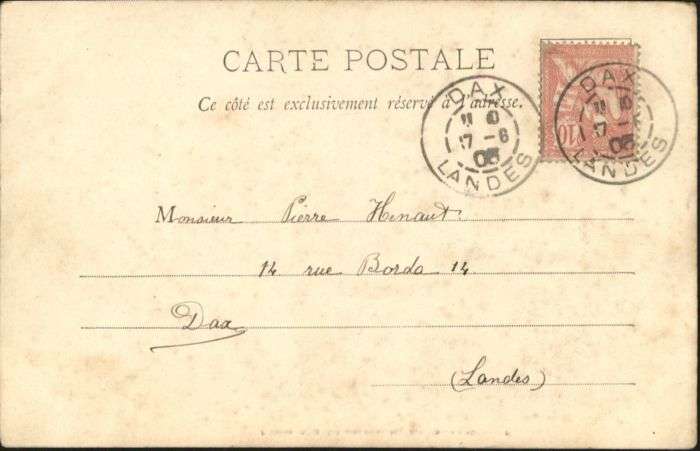 CARTE POSTALE
Ce côté est exclusivement réservé à l'adresse.
DAX
17 - 6
LANDES
10
DAX
LANDES
Monsieur Pierre Henaut
14 rue Borda 14
Dax
(Landes)